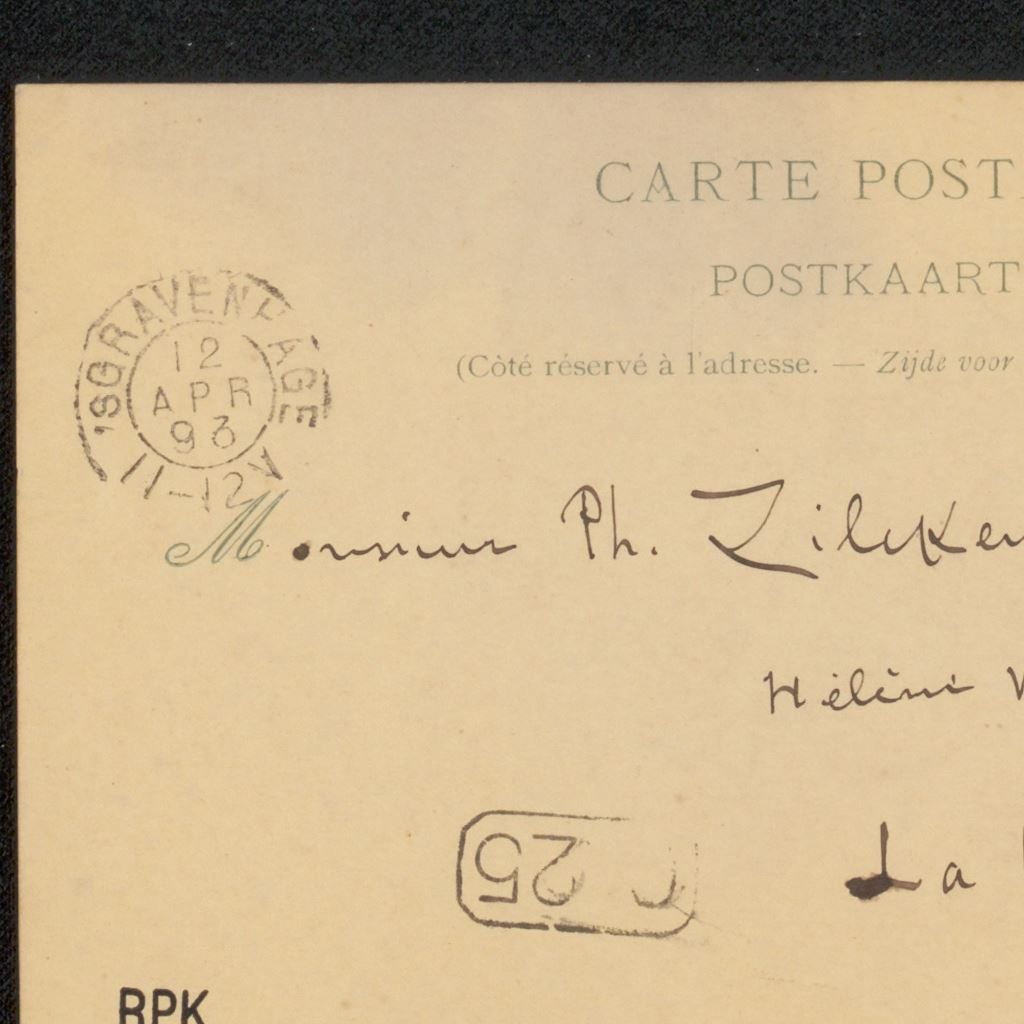 CARTE POST
POSTKAART
(Côté réservé à l'adresse. — Zijde voor
'SGRAVENHAGE
12
APR
93
11-12
Monsieur Ph. Zilcken
Hélène
La
25
RPK